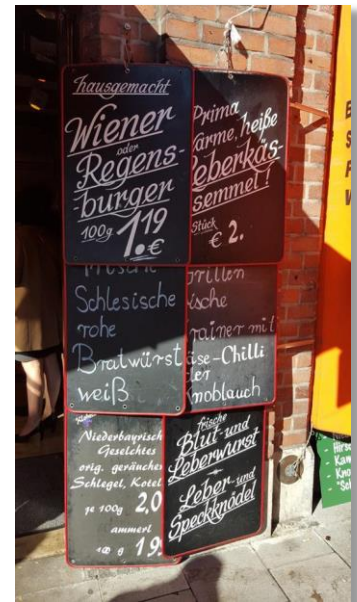 hausgemacht
Wiener
oder
Regens-
burger
100g 1.19
€
Prima
Warme, heiße
Leberkäs-
semmel!
Stück
€ 2.
Schlesische
rohe
Bratwürst
weiß
Grillen
mit
Käse-Chilli
oder
Knoblauch
Niederbayrisch
Geselchtes
orig. geräuchert
Schlegel, Kotel
je 100g 2,0
ammerl
100 g 1,9
frische
Blut-und
Leberwurst
Leber-und
Speckknödel